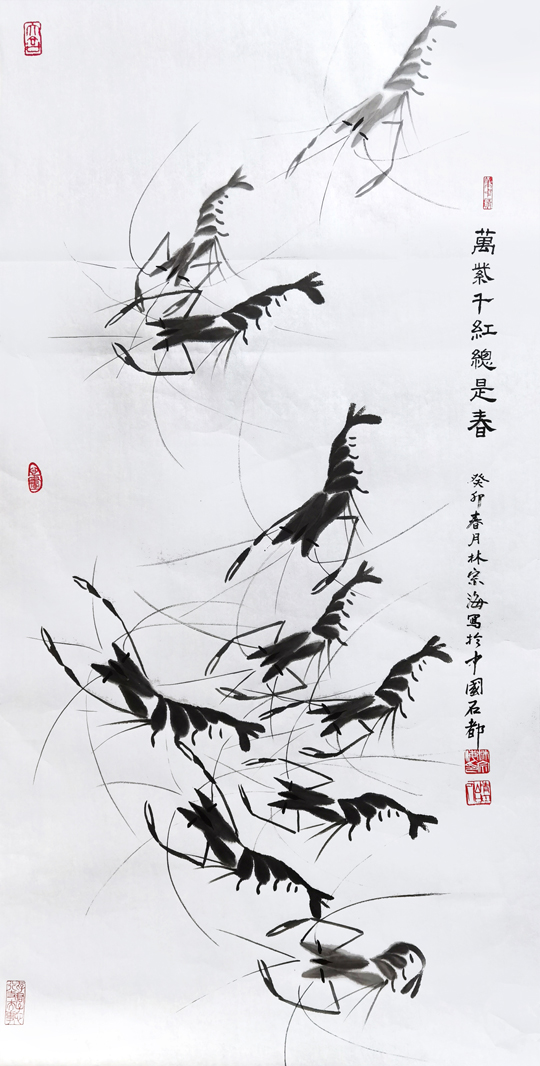 萬紫千紅總是春
癸卯春月林宗海寫於中國石都